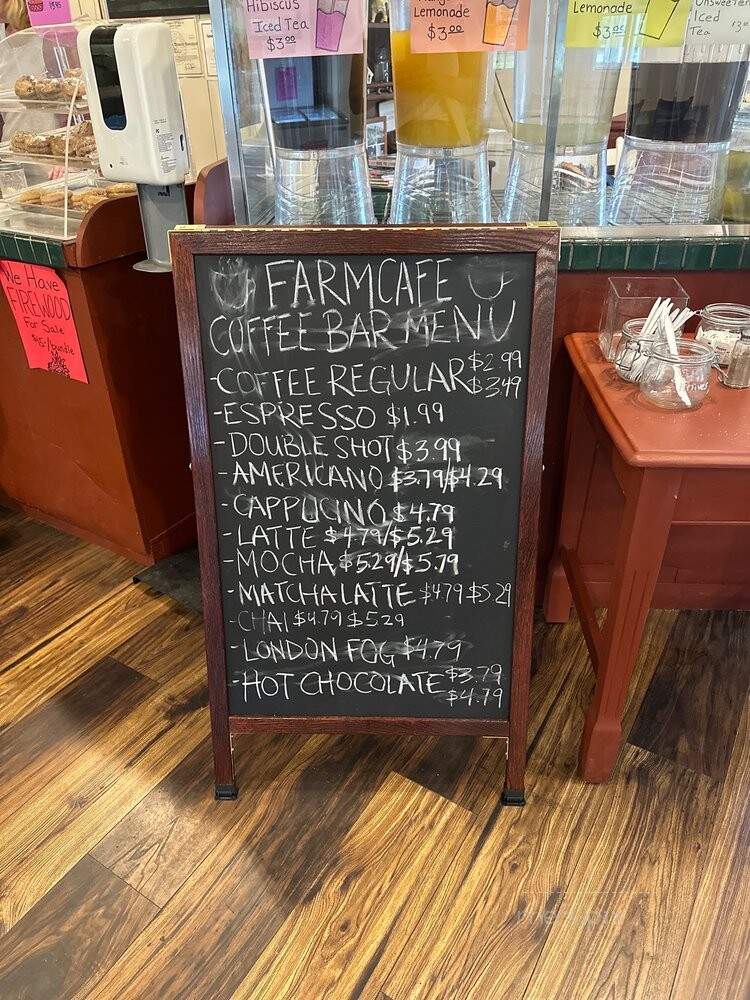 Hibiscus
Iced Tea
$3.00
Lemonade
$3.00
Lemonade
$3.00
Unsweeten
Iced
Tea
We Have
FIREWOOD
For Sale
$15-/bundle
FARMCAFE
COFFEE BAR MENU
-COFFEE REGULAR $2.99
$3.49
-ESPRESSO $1.99
-DOUBLE SHOT $3.99
-AMERICANO $3.79/$4.29
-CAPPUCINO $4.79
-LATTE $4.79/$5.29
-MOCHA $5.29/$5.79
-MATCHA LATTE $4.79 $5.29
-CHAI $4.79 $5.29
-LONDON FOG $4.79
-HOT CHOCOLATE $3.79
$4.79